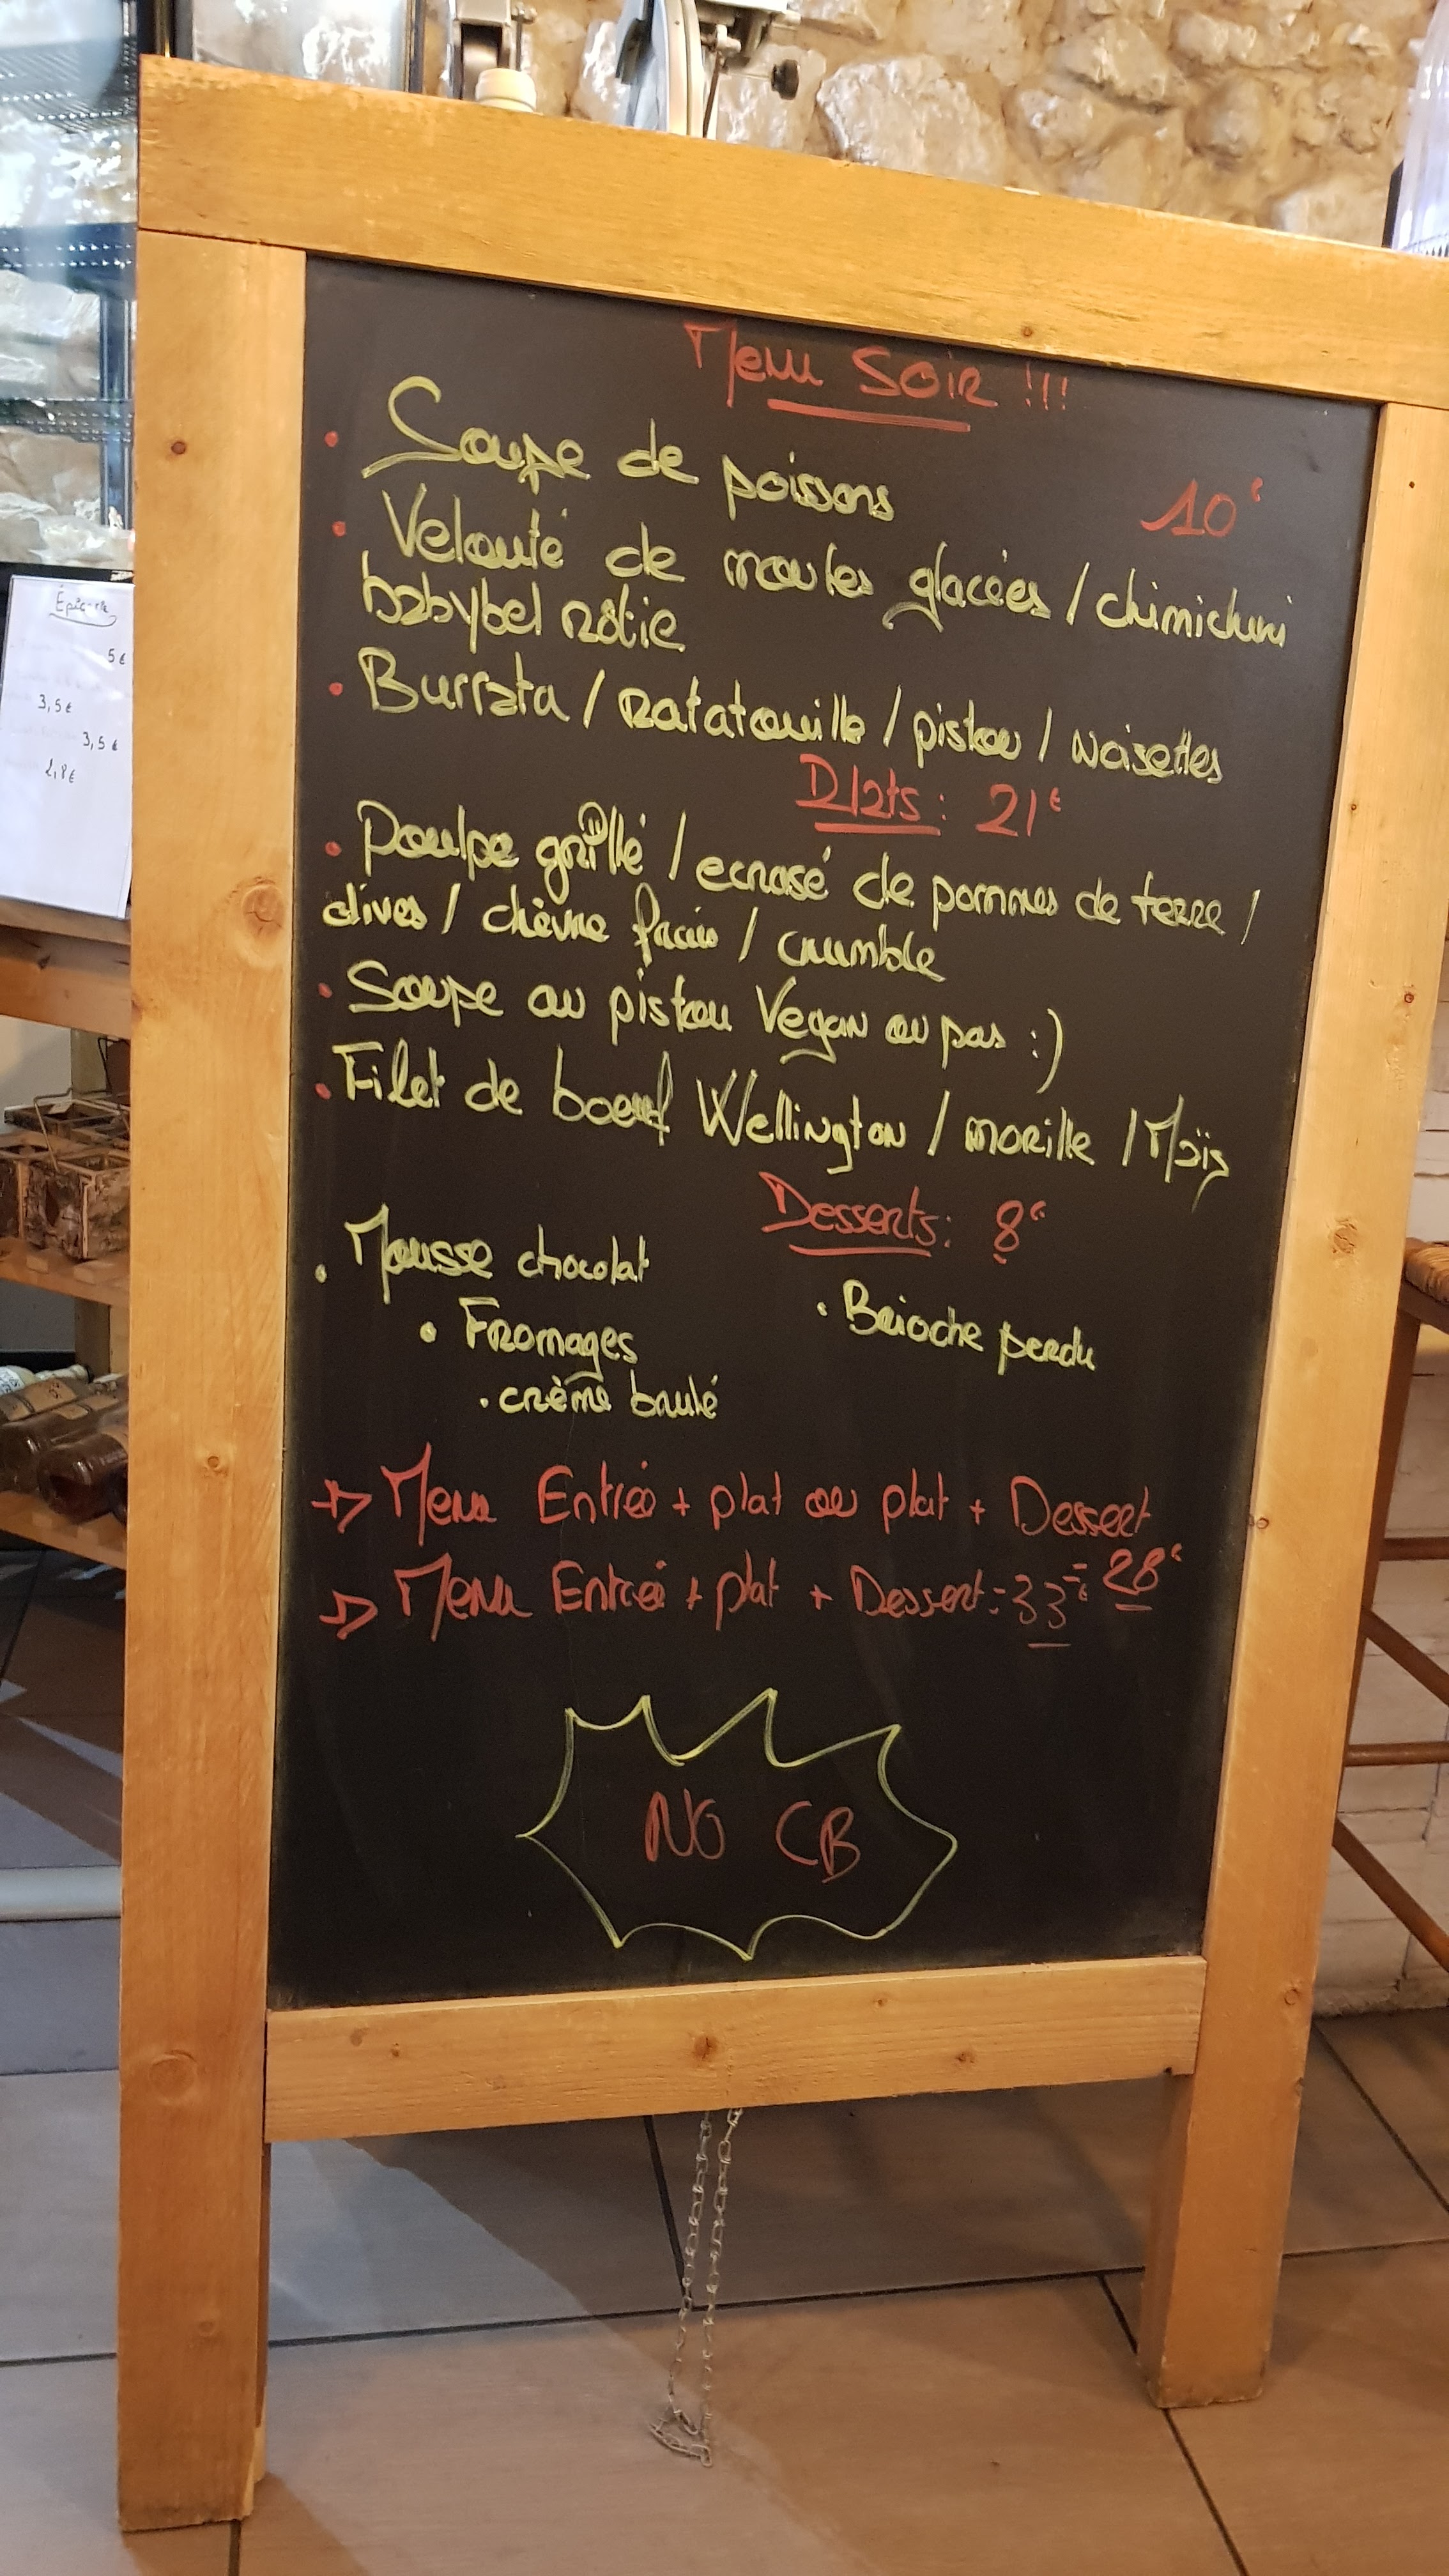 Menu Soir !!!
• Soupe de poissons 10€
• Velouté de moules glacées / chimichuri
babybel rôtie
• Burrata / Ratatouille / pistou / Noisettes
Plats : 21€
• Poulpe grillé / ecrasé de pommes de terre /
olives / chèvre / crumble
• Soupe au pistou Vegan ou pas :)
• Filet de boeuf Wellington / morille / Maïs
Desserts : 8€
• Mousse chocolat
• Brioche perdu
• Fromages
• crème brulé
=> Menu Entrée + plat ou plat + Dessert
= 28€
=> Menu Entrée + plat + Dessert = 33€
NO CB
Épicerie
5€
3,5€
3,5€